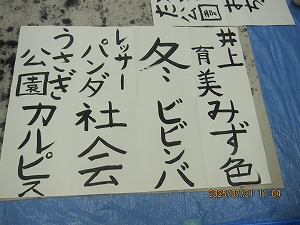 井上
育美みず色
冬、ビビンバ
レッサー
パンダ社会
うさぎ
公園カルピス
公園
2025/07/31 11:04